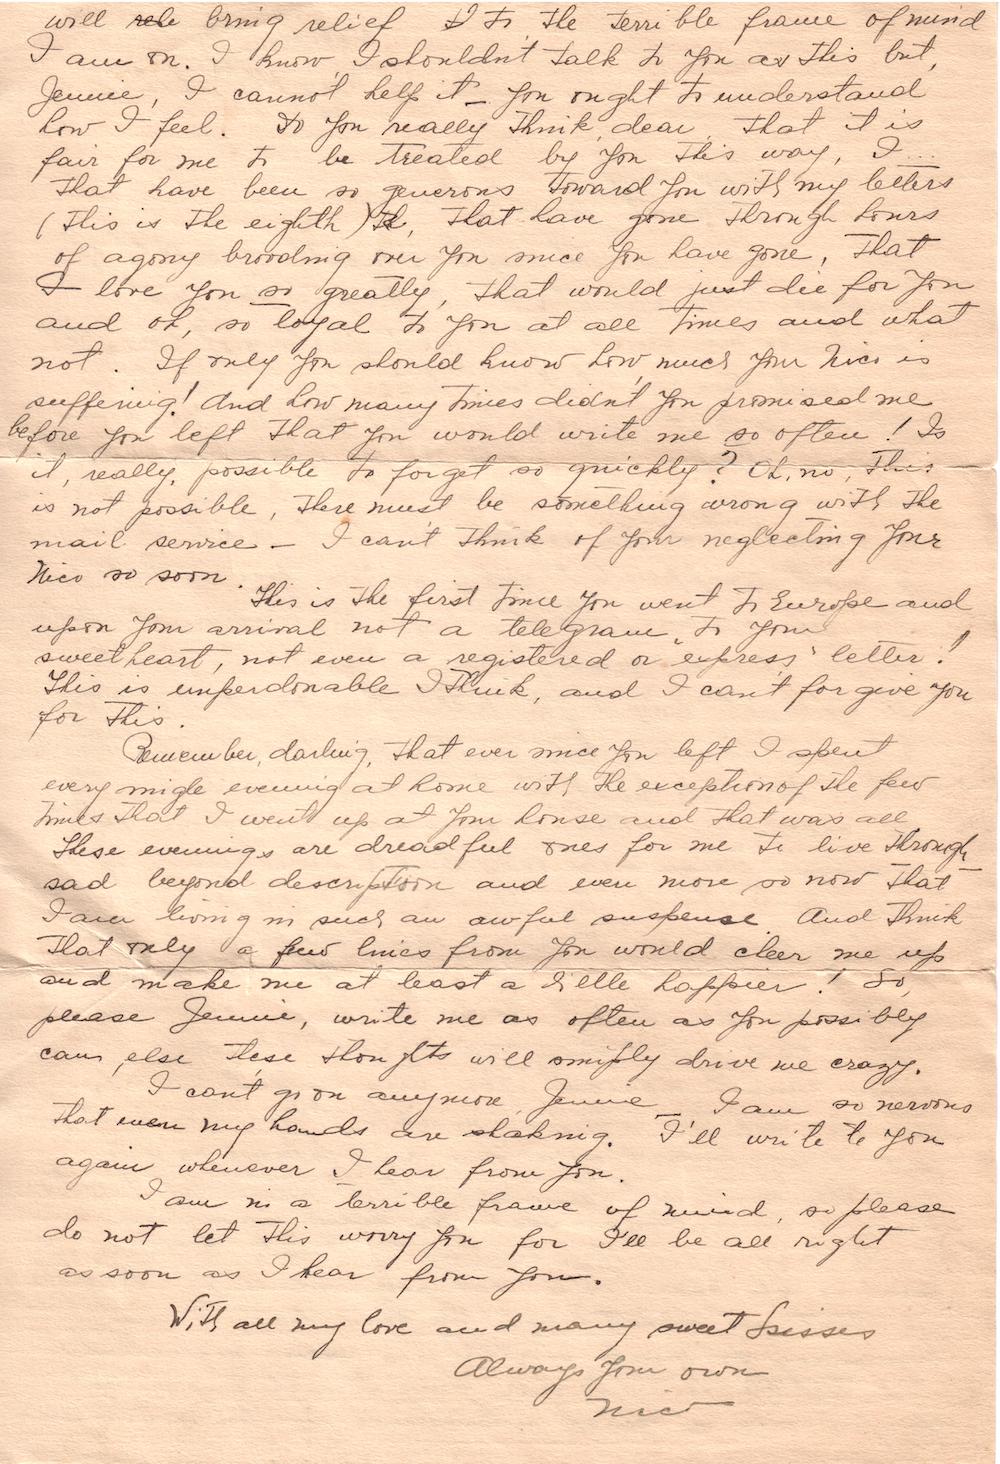 will bring relief to the terrible frame of mind
I am in. I know I shouldn't talk to you as this but,
Jennie, I cannot help it – you ought to understand
how I feel. Do you really think, dear, that it is
fair for me to be treated by you this way, I...
that have been so generous toward you with my letters
(this is the eighth), that have gone through hours
of agony brooding over you since you have gone, that
I love you so greatly, that would just die for you
and oh, so loyal to you at all times and what
not. If only you should know how much your Nico is
suffering! And how many times didn't you promised me
before you left that you would write me so often! Is
it, really, possible to forget so quickly? Oh, no, this
is not possible, there must be something wrong with the
mail service – I can't think of your neglecting your
Nico so soon.
This is the first time you went to Europe and
upon your arrival not a telegram, to your
sweetheart, not even a registered or "express" letter!
This is unperdonable I think, and I can't forgive you
for this.
Remember, darling, that ever since you left I spent
every single evening at home with the exception of the few
times that I went up at your house and that was all
These evenings are dreadful ones for me to live through –
sad beyond description and even more so now that
I am living in such an awful suspense. And think
that only a few lines from you would cheer me up
and make me at least a little happier! So,
please Jennie, write me as often as you possibly
can, else these thoughts will simply drive me crazy.
I can't go on anymore, Jennie – I am so nervous
that even my hands are shaking. I'll write to you
again whenever I hear from you.
I am in a terrible frame of mind, so please
do not let this worry you for I'll be all right
as soon as I hear from you.
With all my love and many sweet kisses
Always your own
Nico